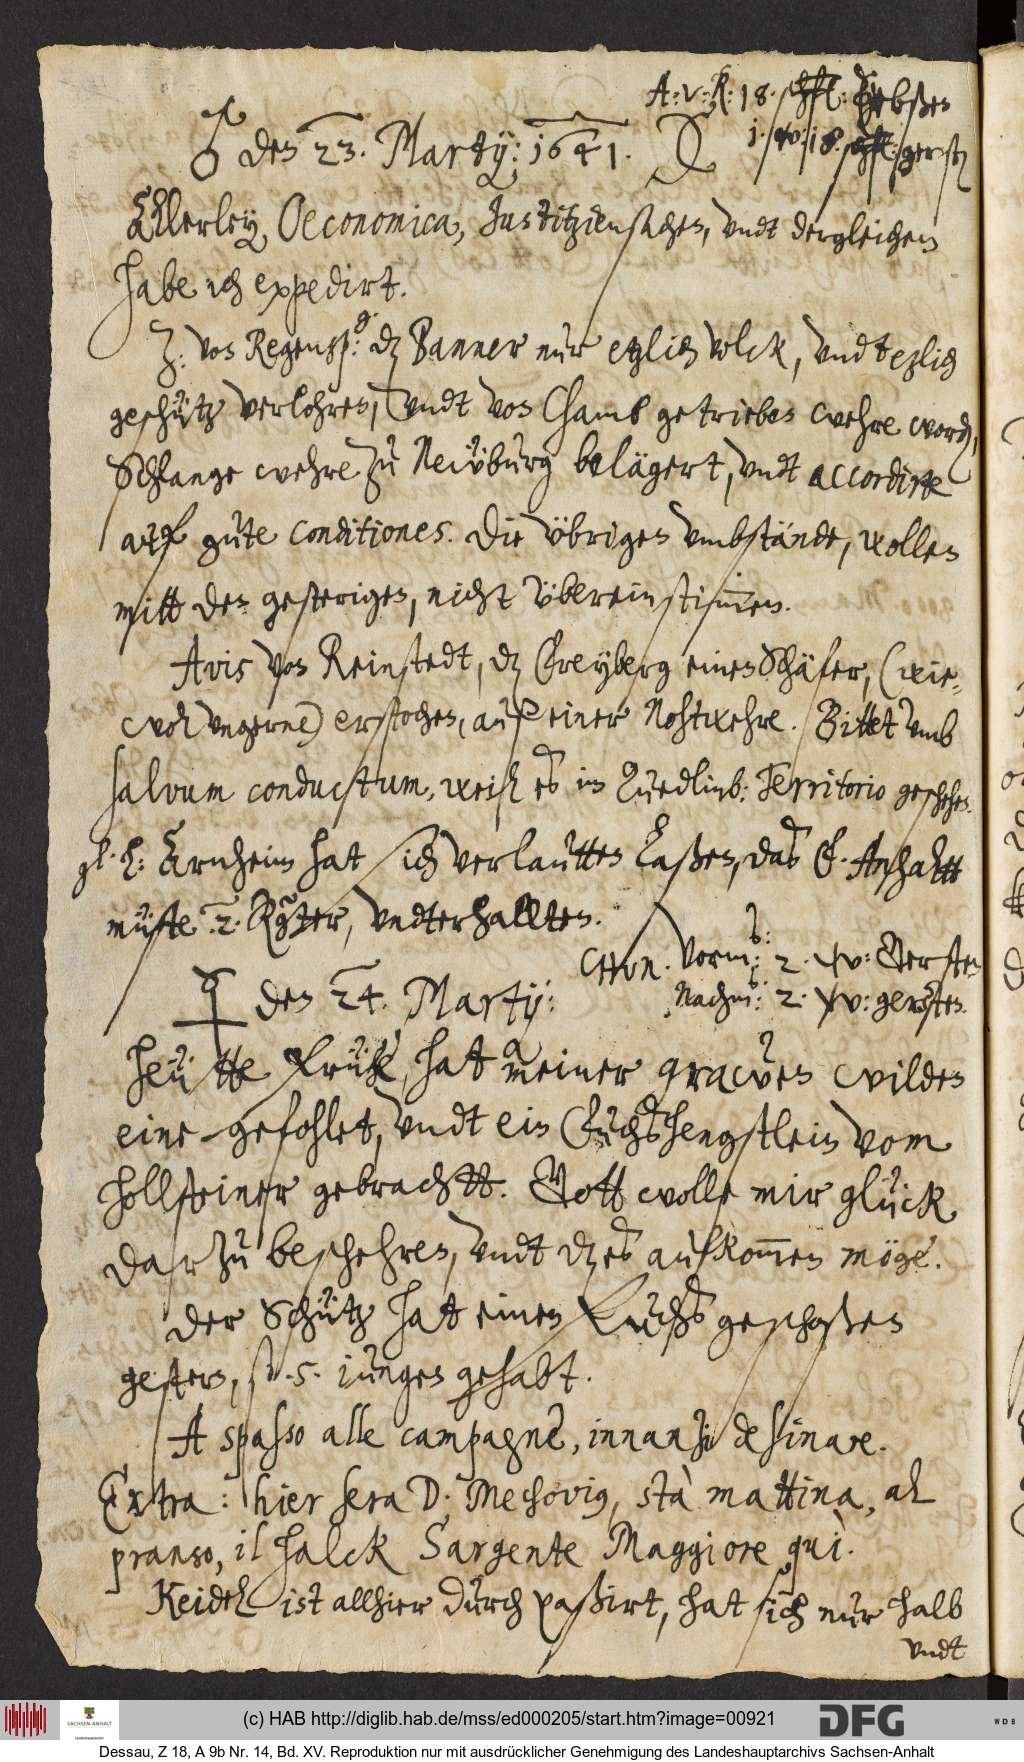 A: v: R: 18. schfl: Hebßen
♂ den 23. Martij: 1641. ☾
1. w: 18. schfl: gersten
Allerley Oeconomica, Iustitziensachen, vndt dergleichen
habe ich expedirt.
Z. von Regenspg: dz Banner nur etzlich volck, vndt etzlich
geschütz verlohren, vndt von Chamb getrieben wehre worden,
Schlange wehre zu Neüburg belägert, vndt accordirte
auf gute conditiones. Die übrigen vmbstände, wollen
mitt den gesterigen, nicht übereinstim̄en.
Avis von Reinstedt, dz Freyberg einen Schäfer, (wie¬
wol vngerne) erstochen, auß einer Nohtwehre. Bittet vmb
salvum conductum, weil es im Quedlinb: Territorio geschehen.
Arnheim hat sich verlautten laßen, das F. Anhaltt
müste .2. Rgter, vndterhallten.
vorm: 2. w: Gersten
☿ den 24. Martij:
Nachm: 2. w: gersten.
Heütte früh, hat meiner grawen wilden
eine gefohlet, vndt ein Fuchshengstlein vom
Hollsteiner gebrachtt. Gott wolle mir glück
darzu beschehren, vndt dz es aufkom̄en möge.
Der Schütz hat einen Luchß geschoßen
gestern, so .5. iungen gehabt.
A spasso alle campagne, innanzi desinare.
Extra: hier sera D. Mechovius, stà mattina, al
pranso, il Halck Sargente Maggiore quì.
Keidel ist allhier durch paßirt, hat sich nur halb
vndt
(c) HAB http://diglib.hab.de/mss/ed000205/start.htm?image=00921
SACHSEN-ANHALT
DFG
WDB
Dessau, Z 18, A 9b Nr. 14, Bd. XV. Reproduktion nur mit ausdrücklicher Genehmigung des Landeshauptarchivs Sachsen-Anhalt